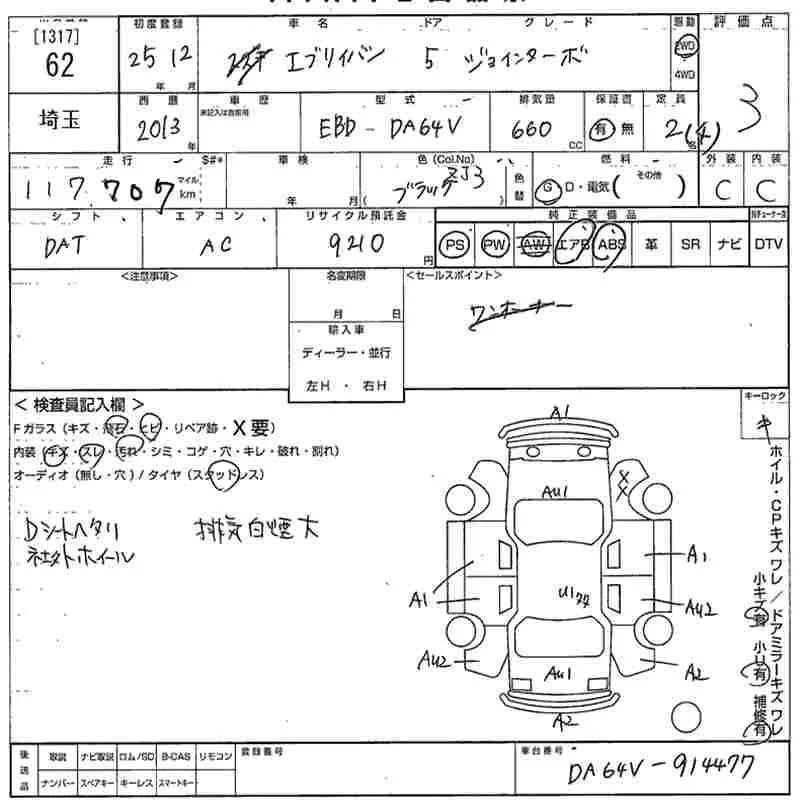 [1317]
62
初度登録
25 12
年 月
車名 ドア グレード
エブリイバン 5 ジョインターボ
駆動
2WD
4WD
評価点
3
埼玉
西暦
2013
年
車歴
未記入は自家用
型式
EBD-DA64V
排気量
660
CC
保証書
有 無
定員
2(4)
名
走行
117,707
マイル
km
S#*
車検
年 月
色(Col.No)
ブラック ZJ3
色替
燃料
G D・電気( その他 )
外装
C
内装
C
シフト
DAT
エアコン
AC
リサイクル預託金
9210
円
純正装備品
PS PW AW エアB ABS 革 SR ナビ DTV
<注意事項>
名変期限
月 日
輸入車
ディーラー・並行
左H・右H
<セールスポイント>
ワンオーナー
<検査員記入欄>
Fガラス(キズ・飛石・ヒビ・リペア跡・X要)
内装(キズ・スレ・汚れ・シミ・コゲ・穴・キレ・破れ・割れ)
オーディオ(無し・穴)/タイヤ(スタッドレス)
Dシートヘタリ 排気白煙大
社外ホイール
キーロック
キ
A1
AU1
X
X
A1
A1
U1
AU2
AU2
AU1
A2
A2
ホイル・CPキズ ワレ/ドアミラーキズ ワレ
小キズ有 小U有 補修有
後送品
取説 ナビ取説 ロム/SD B-CAS リモコン
ナンバー スペアキー キーレス スマートキー
登録番号
車台番号
DA64V-914477